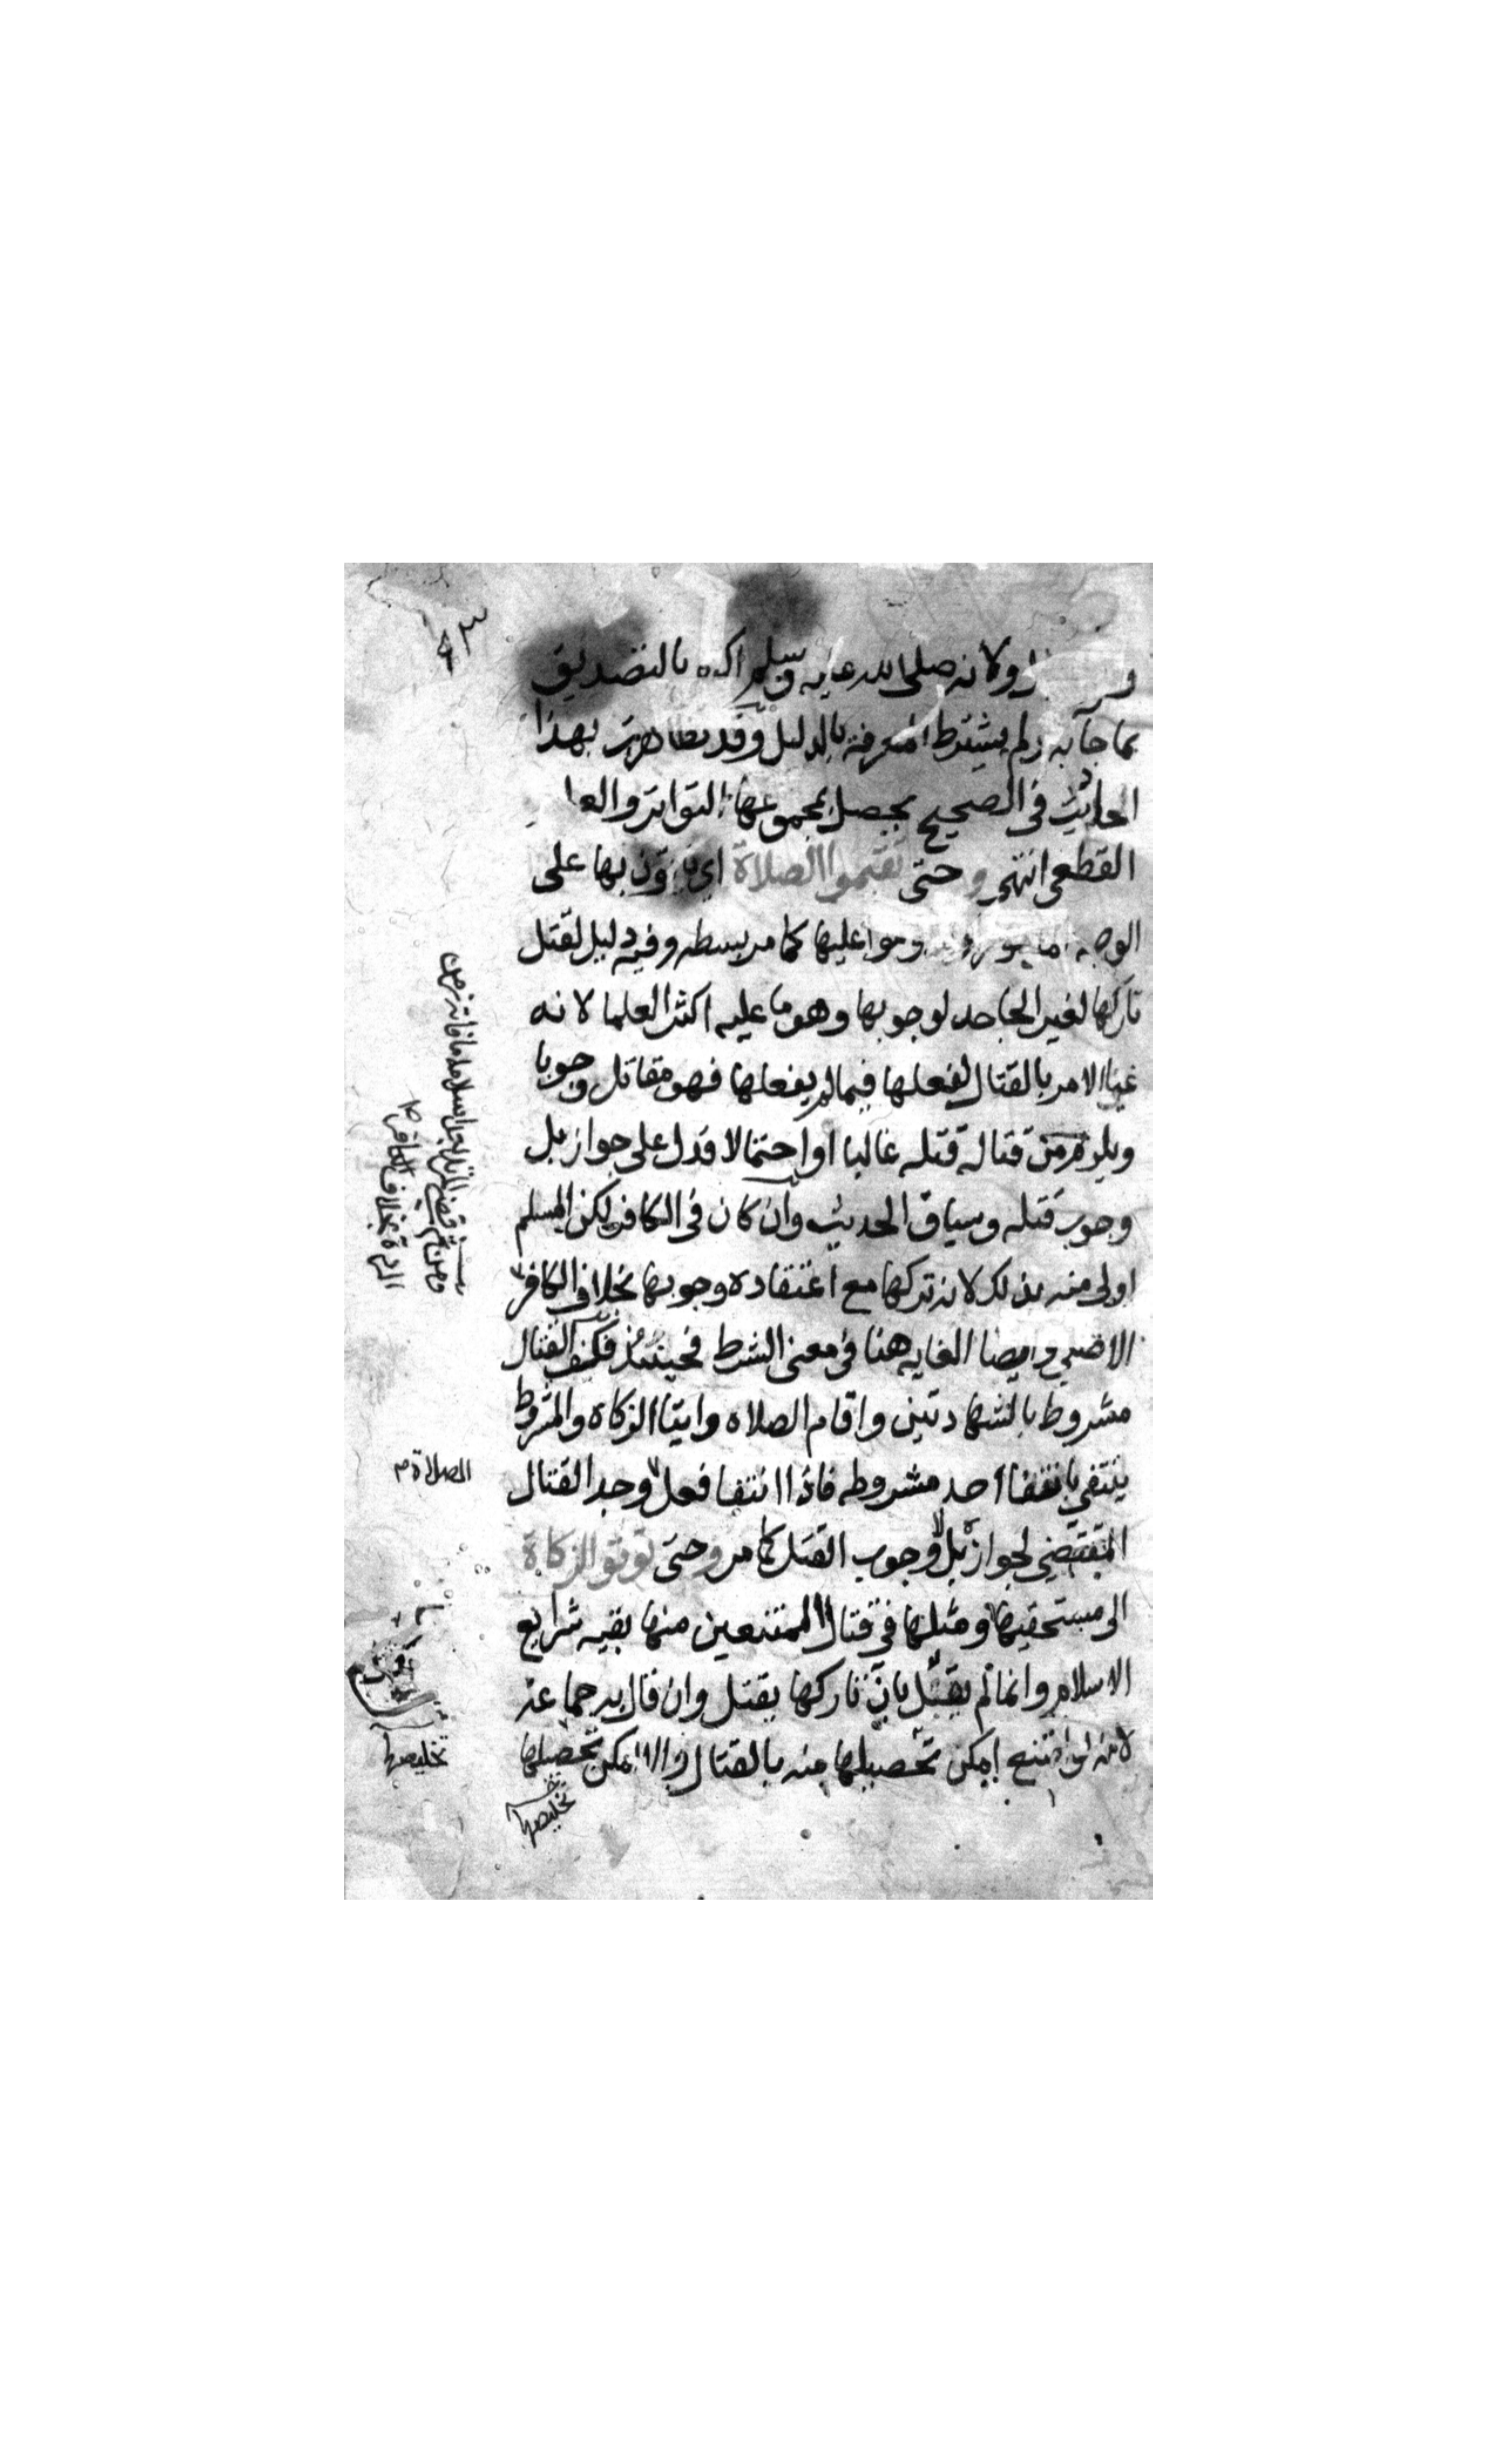 ولانه صلى الله عليه وسلم اكتفى بالتصديق
بما جآ به ولم يشترط المعرفة بالدليل وقد تظاهرت بهذا
احاديث في الصحيح يحصل بمجموعها التواتر والعلم
القطعي انتهى و حتى تقيموا الصلاة اي ياتون بها على
الوجه عليها كما مر بسطه وفيه دليل لقتل
تاركها لغير الجاحد لوجوبها وهو ما عليه اكثر العلما لانه
غيا الامر بالقتال لفعلها فيما لم يفعلها فهو مقاتل وجوبا
ويلزم من قتاله قتله غالبا او احتمالا فدل على جواز بل
وجوب قتله وسياق الحديث وان كان في الكافر لكن المسلم
اولى منه بذلك لانه تركها مع اعتقاده وجوبها بخلاف الكافر
الاصلي وايضا الغايه هنا في معنى الشرط فحينئذ فكف القتال
مشروط بالشهادتين واقام الصلاه وايتا الزكاة والمشروط
ينتفي بانتفا احد مشروطه فاذا انتفا فعل وجد القتال
المقتضي لجواز بل وجوب القتل كما مر وحتى توتو الزكاة
الى مستحقيها ومثلها في قتال الممتنعين منها بقيه شرايع
الاسلام وانما لم يقل بان تاركها يقتل وان قال به جماعه
لانه ان امتنع امكن تحصيلها منه بالقتال والا امكن تحصيلها
تخليصها
ومن ثم قضى المرتد بعد اسلامه ما فاته زمن
الردة بخلاف الكافر
الصلاة
تخليصها